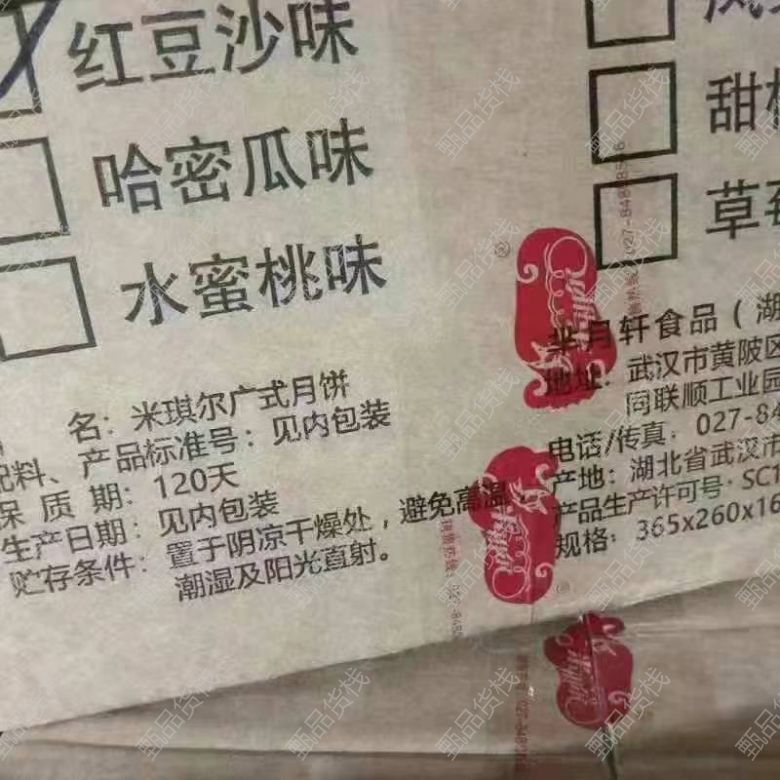 红豆沙味
哈密瓜味
水蜜桃味
甜
草莓
名：米琪尔广式月饼
配料、产品标准号：见内包装
保 质 期：120天
生产日期：见内包装
贮存条件：置于阴凉干燥处，避免高温，
潮湿及阳光直射。
芈月轩食品（湖
地址：武汉市黄陂区
同联顺工业园
电话/传真：027-8
产地：湖北省武汉市
产品生产许可号：SC1
规格：365x260x16
甄品货栈